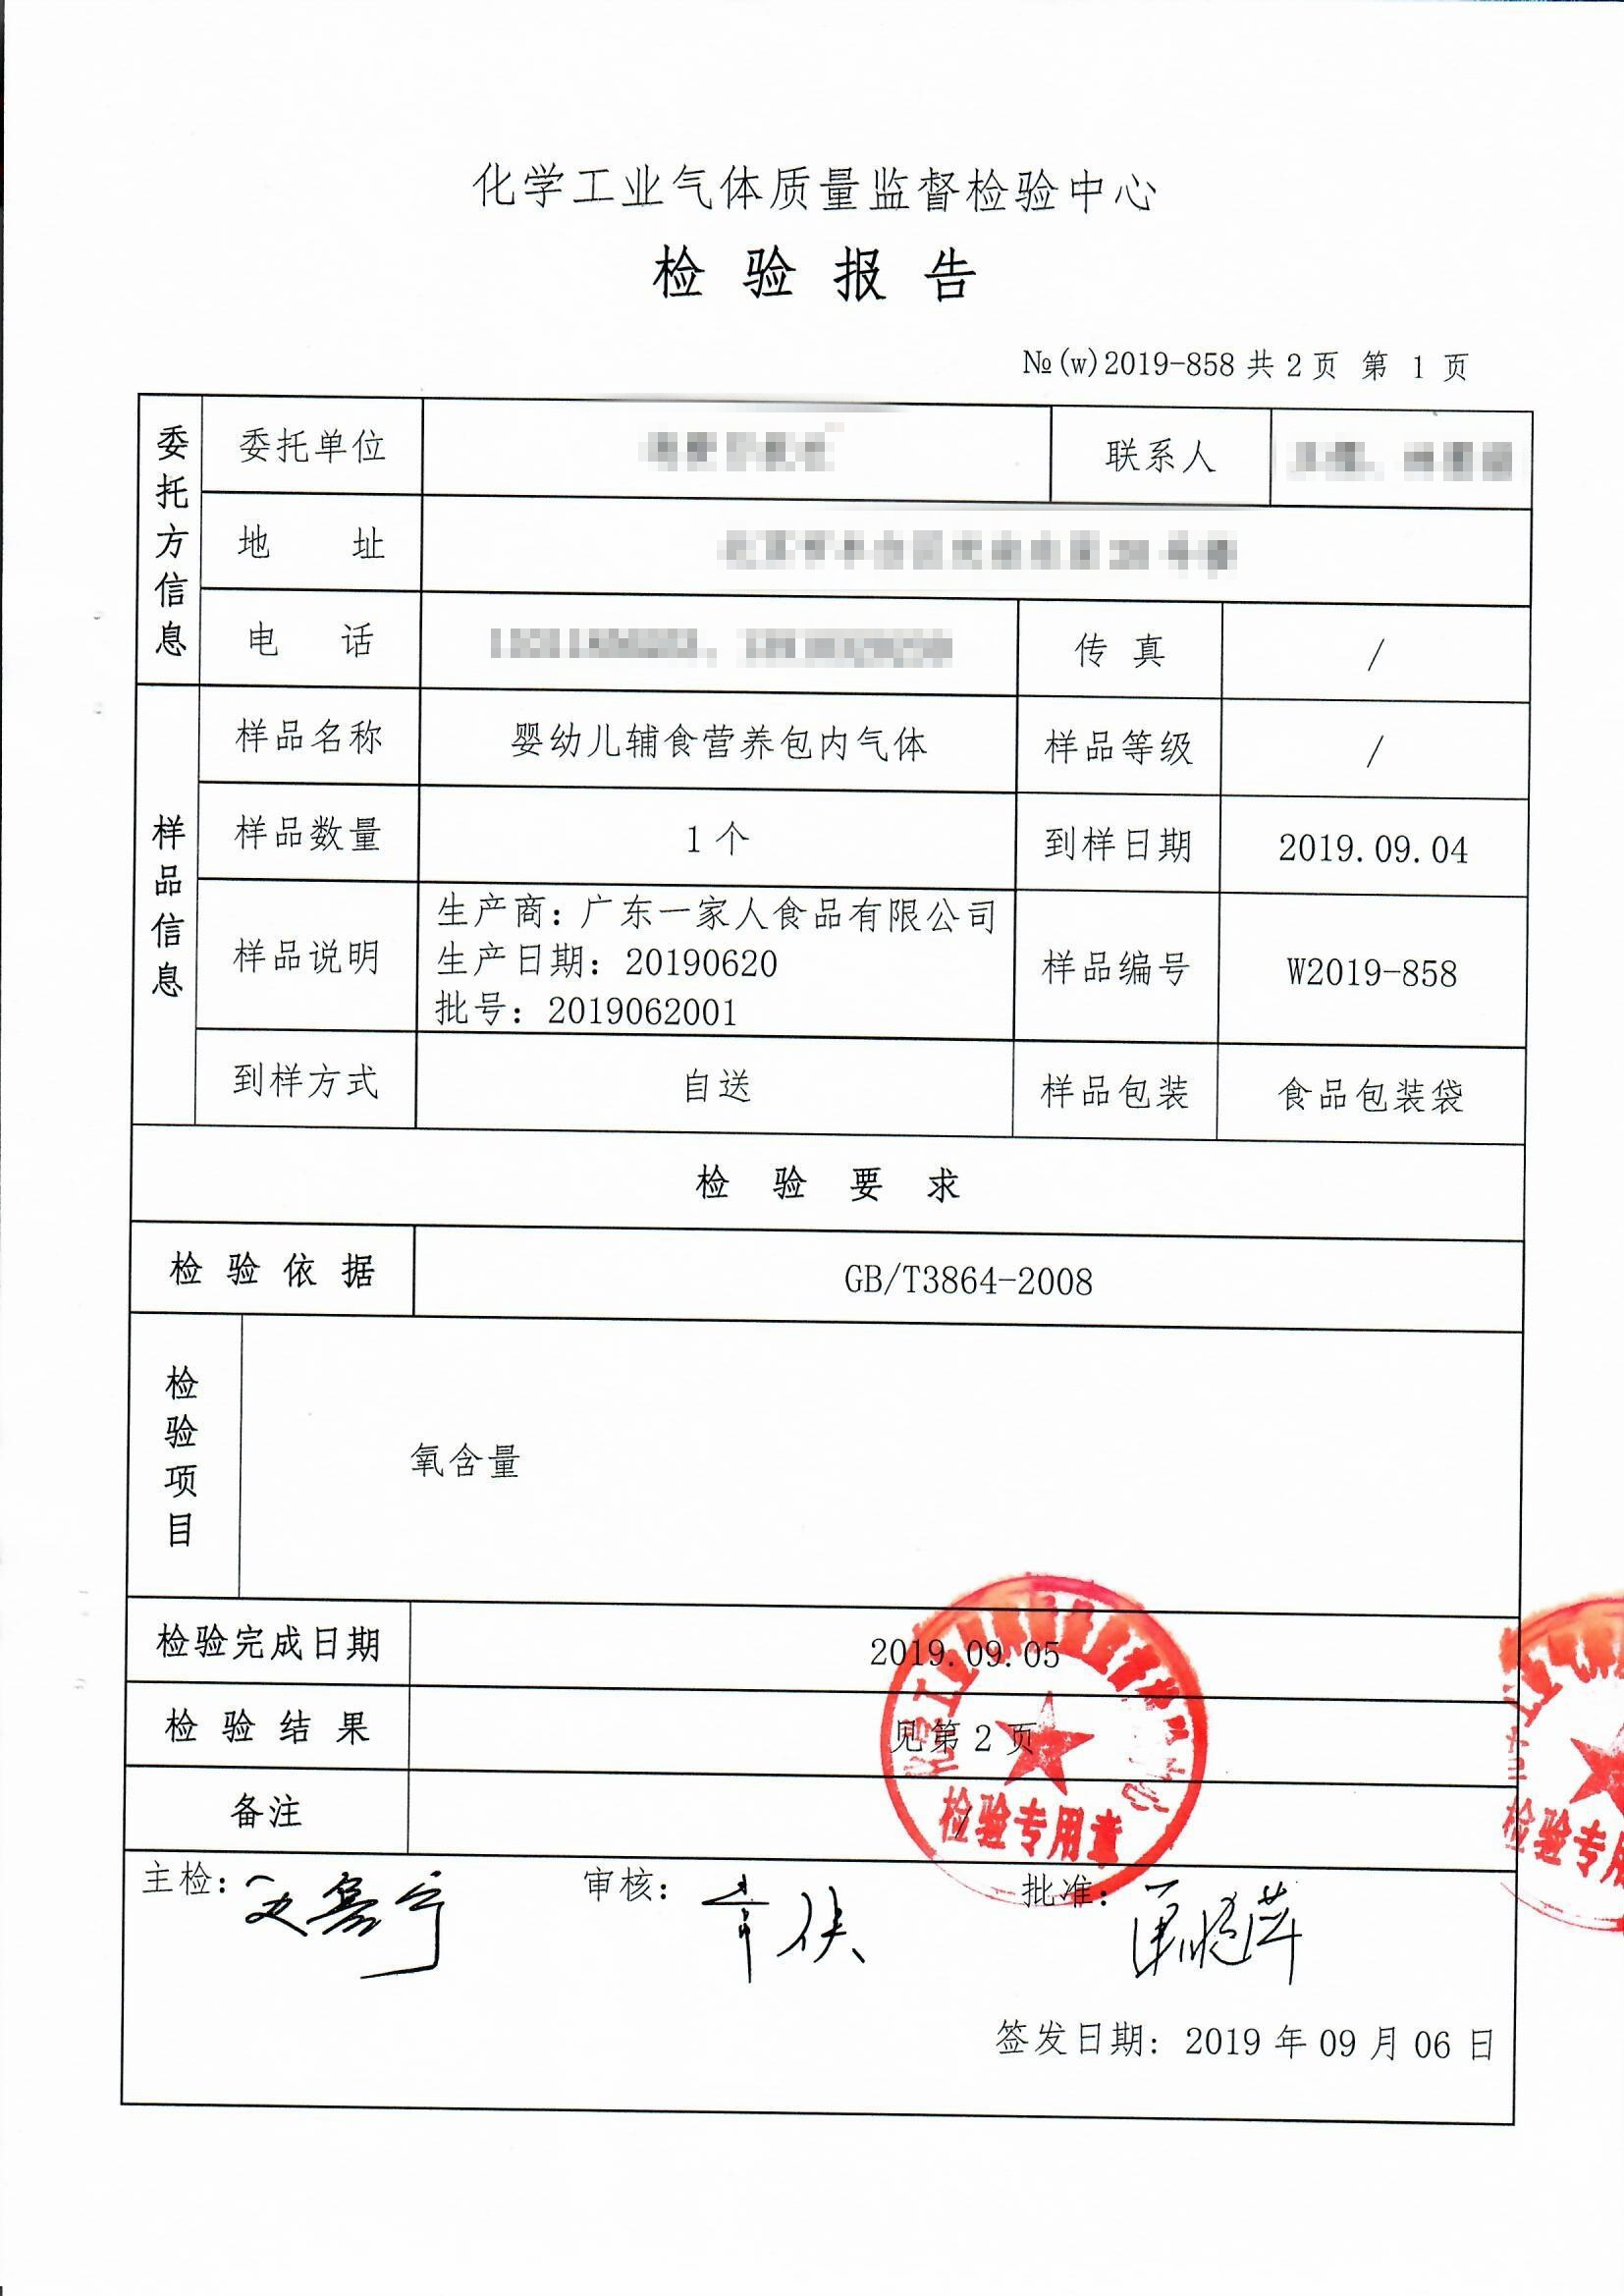 化学工业气体质量监督检验中心
检验报告
№(w)2019-858 共 2 页 第 1 页
委托方信息
委托单位
联系人
地 址
电 话
传 真
/
样品信息
样品名称
婴幼儿辅食营养包内气体
样品等级
/
样品数量
1 个
到样日期
2019.09.04
样品说明
生产商：广东一家人食品有限公司
生产日期：20190620
批号：2019062001
样品编号
W2019-858
到样方式
自送
样品包装
食品包装袋
检 验 要 求
检 验 依 据
GB/T3864-2008
检验项目
氧含量
检验完成日期
2019.09.05
检 验 结 果
见第 2 页
备注
/
检验专用章
主检：
审核：
批准：
签发日期：2019 年 09 月 06 日